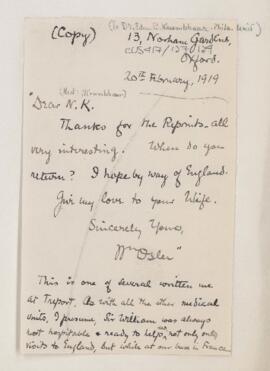 (To Dr. Edw. B. Krumbhaar. Phila. Unit)
(Copy)
13, Norham Gardens,
CUS417/137.129
Oxford.
20th February, 1919
(Med: Krumbhaar)
"Dear N.K.
Thanks for the Reprints - all
very interesting. When do you
return? I hope by way of England.
Give my love to your Wife.
Sincerely Yours,
Wm Osler"
This is one of several written me
at Treport. As with all the other medical
units, I presume, Sir William was always
most hospitable & ready to help, not only on
visits to England, but while at our base in France